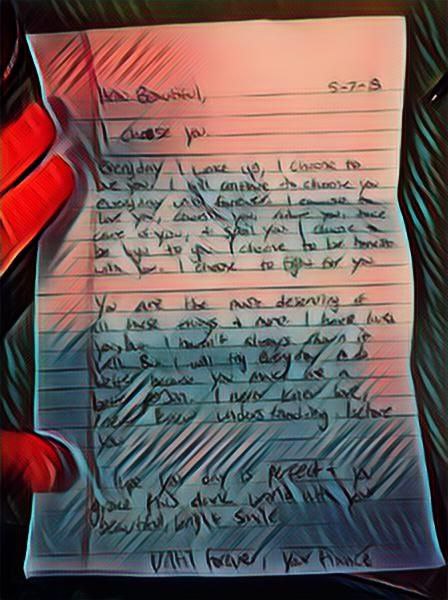 Beautiful, 5-7-18
I choose you
Everyday I wake up, I choose to
love you. I will continue to choose you
everyday until forever. I choose to
love you, you, take
care of you, & spoil you. I choose to
be loyal to you. I choose to be honest
with you. I choose to fight for you
You are the most deserving of
all these things & more. I have
you, but I haven't always shown it
well. But I will try everyday to be
better because you make me a
better person. I never knew love,
never knew understanding before
you
I hope your day is perfect & you
grace this dark world with your
beautiful, bright smile
Until forever, your fiance